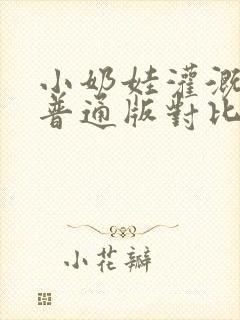 小奶娃灌溉
普通版對比
小花瓣